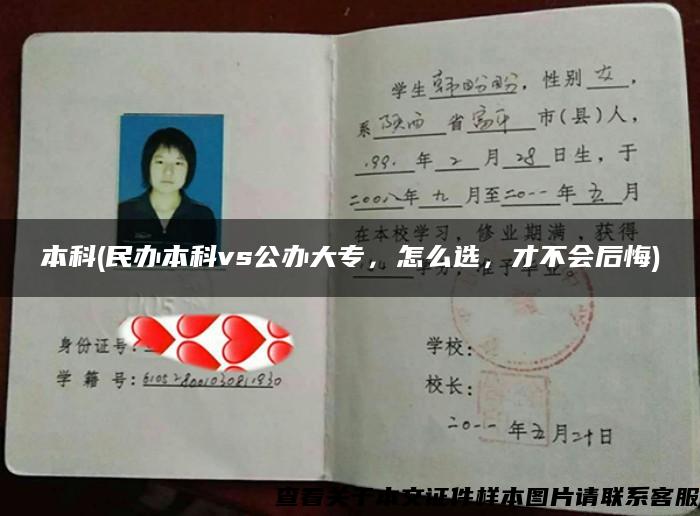 学生韩盼盼，性别女，
系陕西省富平市(县)人，
199.年2月28日生，于
二00八年九月至二0一一年五月
在本校学习，修业期满，获得
学分，准予毕业
本科(民办本科vs公办大专，怎么选，才不会后悔)
身份证号：
学籍号：610528001030811930
学校：
校长：
二0一一年五月二十日
查看关于本文证件样本图片请联系客服